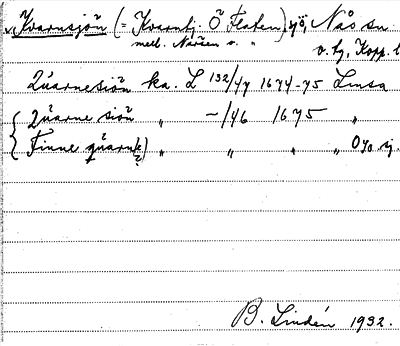 Kvarnsjön (= Kvarntj. Ö Flaten) sjö, Nås sn
mell. Närsen o. "
v. hg, Kopp. l
Quarnesiön ka. L 132/47 1674-75 Limsa
Quarne siön " -/46 1675 "
Finne quarn " " " " Oyo sj.
B. Lindén 1932.